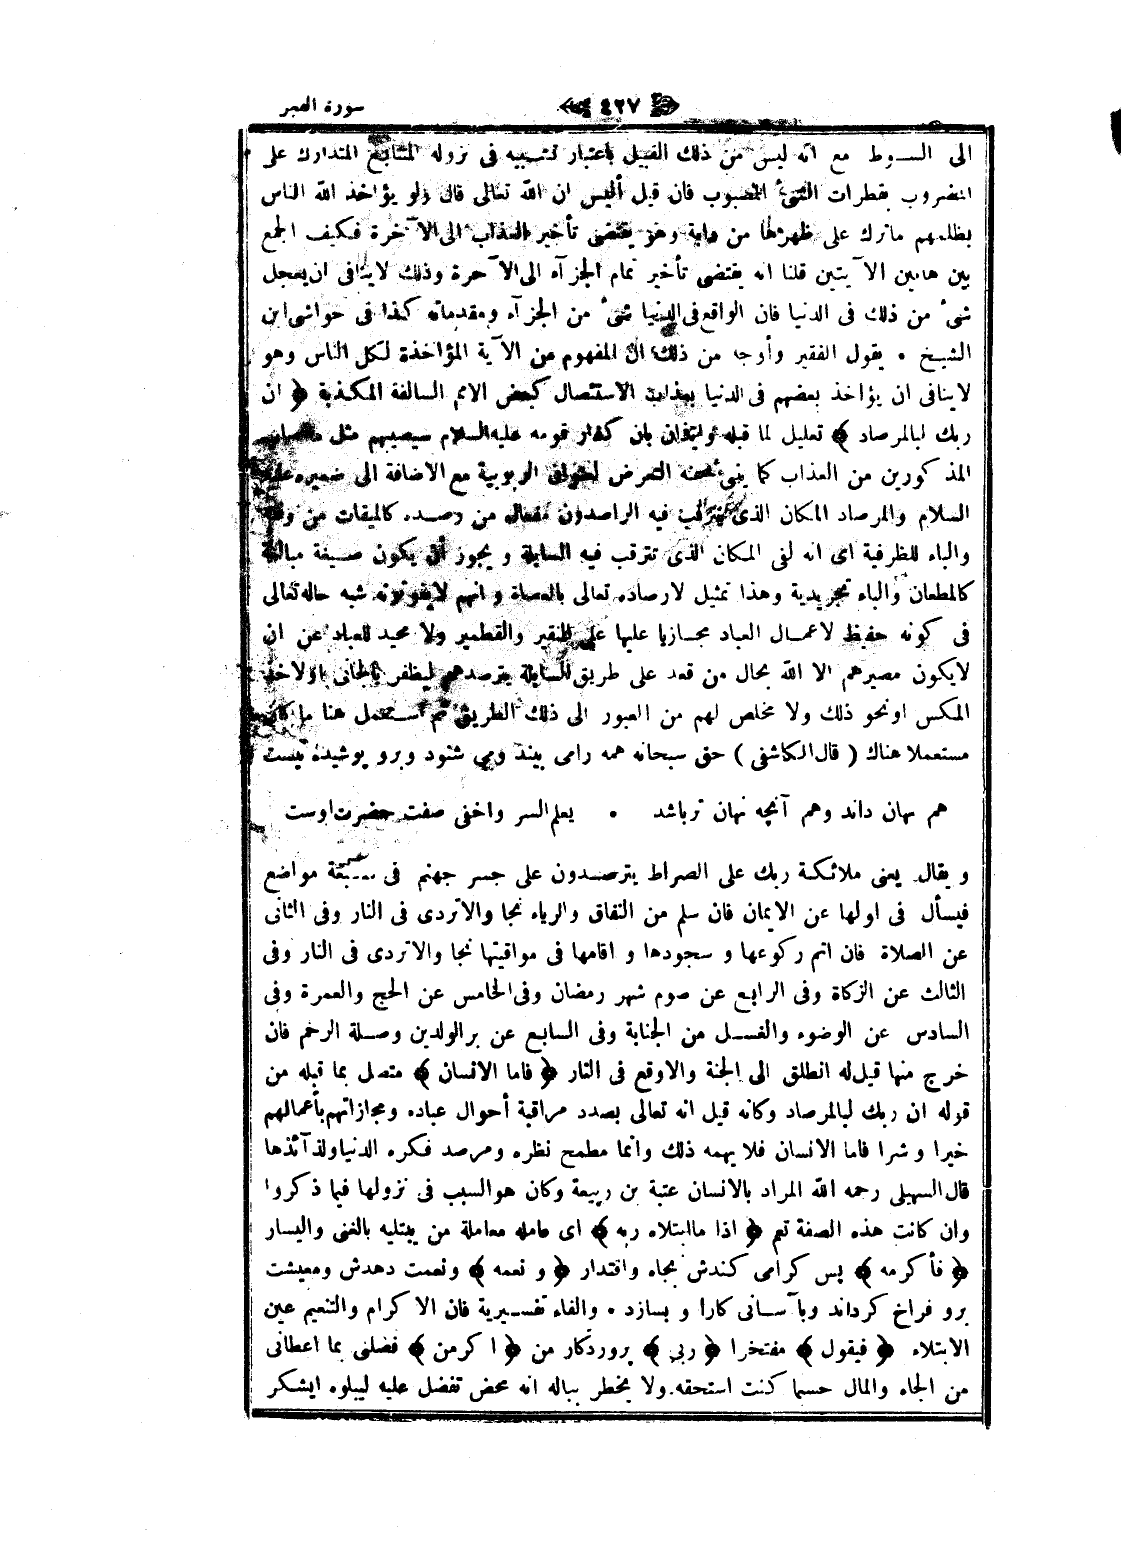 سورة الفجر ٤٢٧
الى السوط مع انه ليس من ذلك القبيل باعتبار تشبيه فى نزوله المتتابع المتدارك على
المضروب بقطرات الشئ المصبوب فان قيل أليس ان الله تعالى قال ولو يؤاخذ الله الناس
بظلمهم ماترك على ظهرها من دابة وهو يقتضى تأخير العذاب الى الآخرة فكيف الجمع
بين هاتين الآيتين قلنا انه يقتضى تأخير تمام الجزآء الى الآخرة وذلك لاينافى ان يعجل
شئ من ذلك فى الدنيا فان الواقع فى الدنيا شئ من الجزآء ومقدماته كذا فى حواشى ابن
الشيخ • يقول الفقير وأوجه من ذلك ان المفهوم من الآية المؤاخذة لكل الناس وهو
لاينافى ان يؤاخذ بعضهم فى الدنيا بعذاب الاستئصال كبعض الامم السالفة المكذبة ﴿ ان
ربك لبالمرصاد ﴾ تعليل لما قبله وايذان بان كفار قومه عليه السلام سيصيبهم مثل مااصاب
المذكورين من العذاب كما ينبئ عنه التعرض لعنوان الربوبية مع الاضافة الى ضميره عليه
السلام والمرصاد المكان الذى يترقب فيه الراصدون مفعال من رصده كالميقات من وقته
والباء للظرفية اى انه لفى المكان الذى تترقب فيه السابلة و يجوز أن يكون صيغة مبالغة
كالمطعان والباء تجريدية وهذا تمثيل لارصاده تعالى بالعصاة و انهم لايفوتونه شبه حاله تعالى
فى كونه حفيظ لاعمال العباد مجازيا عليها على النقير والقطمير ولا محيد للعباد عن ان
لايكون مصيرهم الا الله بحال من قعد على طريق السابلة يترصدهم ليظفر بالجانى اولاخذ
المكس اونحو ذلك ولا مخلص لهم من العبور الى ذلك الطريق ثم استعمل هنا ما كان
مستعملا هناك ( قال الكاشفى ) حق سبحانه همه رامى بيند ومى شنود وبرو پوشيده نيست
هم نهان داند وهم آنچه نهان ترباشد • يعلم السر واخفى صفت حضرت اوست
و يقال يعنى ملائكة ربك على الصراط يترصدون على جسر جهنم فى سبعة مواضع
فيسأل فى اولها عن الايمان فان سلم من النفاق والرياء نجا والاتردى فى النار وفى الثانى
عن الصلاة فان اتم ركوعها و سجودها و اقامها فى مواقيتها نجا والاتردى فى النار وفى
الثالث عن الزكاة وفى الرابع عن صوم شهر رمضان وفى الخامس عن الحج والعمرة وفى
السادس عن الوضوء والغسل من الجنابة وفى السابع عن برالولدين وصلة الرحم فان
خرج منها قيل له انطلق الى الجنة والاوقع فى النار ﴿ فاما الانسان ﴾ متصل بما قبله من
قوله ان ربك لبالمرصاد وكانه قيل انه تعالى بصدد مراقبة أحوال عباده ومجازاتهم بأعمالهم
خيرا و شرا فاما الانسان فلا يهمه ذلك وانما مطمح نظره ومرصد فكره الدنيا ولذآئذها
قال السهيلى رحمه الله المراد بالانسان عتبة بن ربيعة وكان هو السبب فى نزولها فيما ذكروا
وان كانت هذه الصفة تعم ﴿ اذا ماابتلاه ربه ﴾ اى عامله معاملة من يبتليه بالغنى واليسار
﴿ فأكرمه ﴾ پس كرامى كندش بجاه واقتدار ﴿ و نعمه ﴾ ونعمت دهدش ومعيشت
برو فراخ كرداند وبآسانى كارا و بسازد • والفاء تفسيرية فان الاكرام والتنعيم عين
الابتلاء ﴿ فيقول ﴾ مفتخرا ﴿ ربى ﴾ پروردكار من ﴿ اكرمن ﴾ فضلنى بما اعطانى
من الجاه والمال حسبما كنت استحقه ولا يخطر بباله انه محض تفضل عليه ليبلوه ايشكر